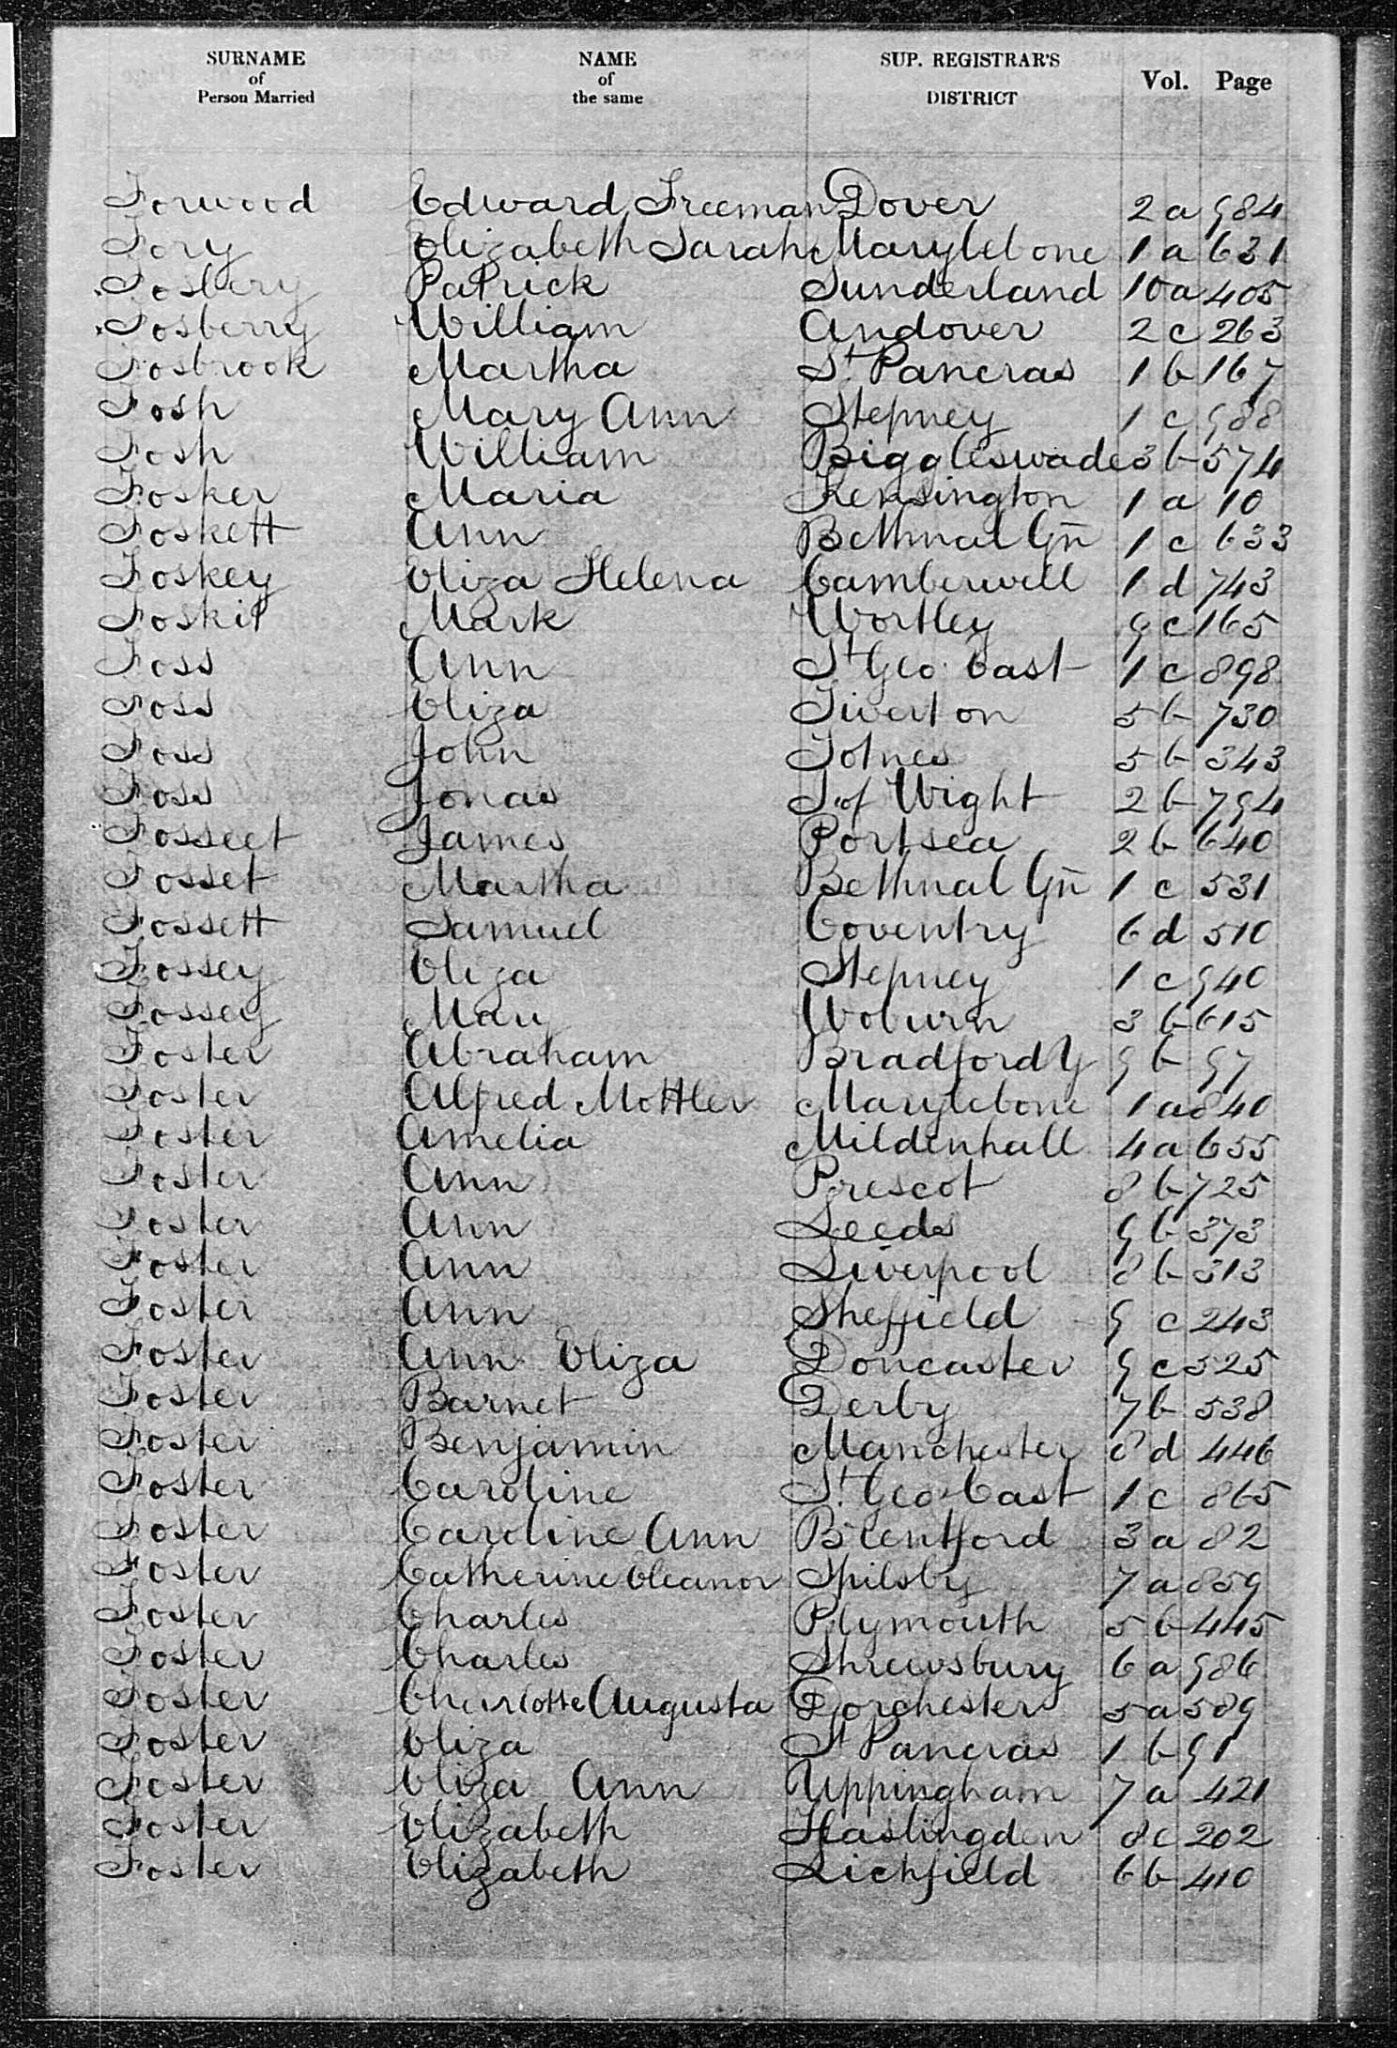 SURNAME of Person Married NAME of the same SUP. REGISTRAR'S DISTRICT Vol. Page
Forwood Edward Freeman Dover 2 a 984
Fory Elizabeth Sarah Marylebone 1 a 631
Fosbery Patrick Sunderland 10 a 405
Fosberry William Andover 2 c 263
Fosbrook Martha St Pancras 1 b 167
Fosh Mary Ann Stepney 1 c 988
Fosh William Biggleswade 3 b 574
Fosker Maria Kensington 1 a 10
Foskett Ann Bethnal Gn 1 c 633
Foskey Eliza Helena Camberwell 1 d 743
Foskit Mark Wortley 9 c 165
Foss Ann St Geo. East 1 c 898
Foss Eliza Tiverton 5 b 730
Foss John Totnes 5 b 343
Foss Jonas I. of Wight 2 b 794
Fosseet James Portsea 2 b 640
Fosset Martha Bethnal Gn 1 c 531
Fossett Samuel Coventry 6 d 510
Fossey Eliza Stepney 1 c 940
Fossey Mary Woburn 3 b 615
Foster Abraham Bradford Y 9 b 97
Foster Alfred Mottler Marylebone 1 a 840
Foster Amelia Mildenhall 4 a 655
Foster Ann Prescot 8 b 725
Foster Ann Leeds 9 b 373
Foster Ann Liverpool 8 b 313
Foster Ann Sheffield 9 c 243
Foster Ann Eliza Doncaster 9 c 325
Foster Barnet Derby 7 b 538
Foster Benjamin Manchester 8 d 446
Foster Caroline St Geo East 1 c 865
Foster Caroline Ann Brentford 3 a 82
Foster Catherine Eleanor Spilsby 7 a 859
Foster Charles Plymouth 5 b 445
Foster Charles Shrewsbury 6 a 986
Foster Charlotte Augusta Dorchester 5 a 589
Foster Eliza St Pancras 1 b 91
Foster Eliza Ann Uppingham 7 a 421
Foster Elizabeth Haslingden 8 c 202
Foster Elizabeth Lichfield 6 b 410